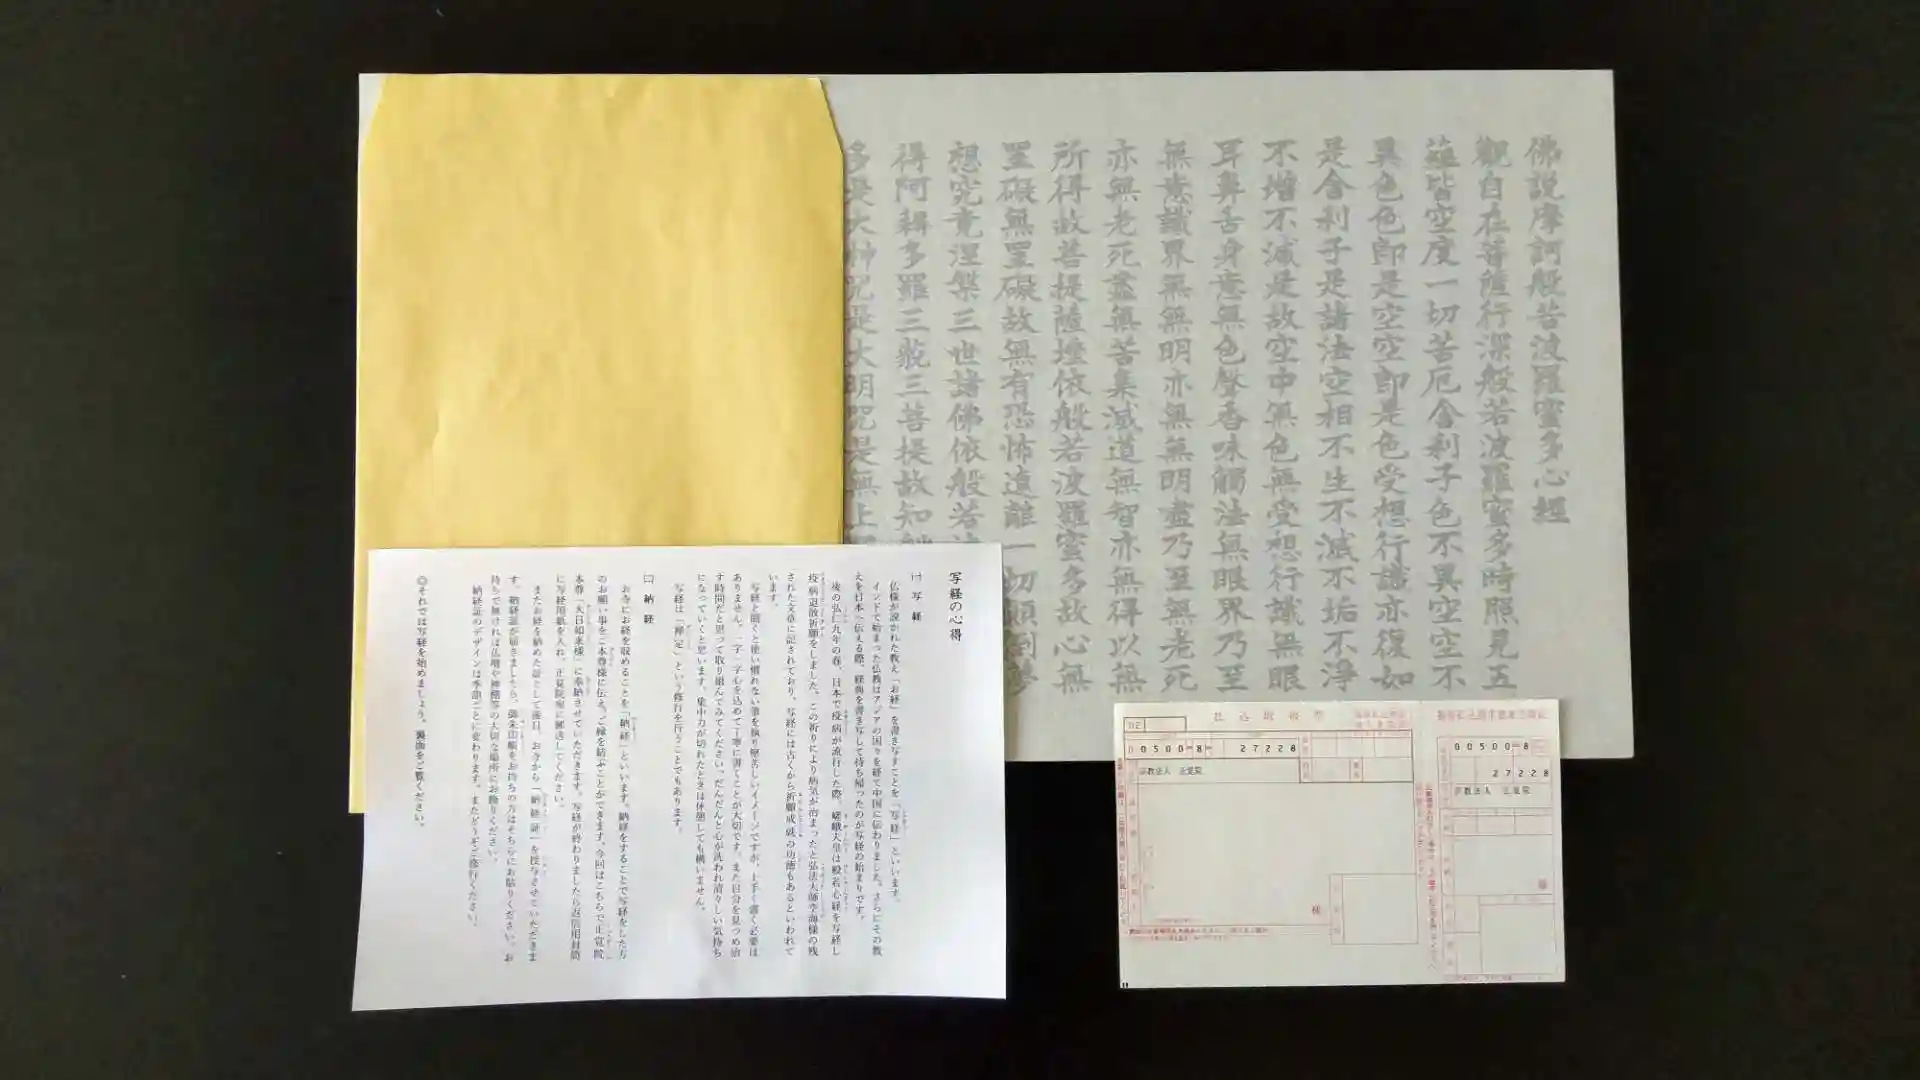 佛説摩訶般若波羅蜜多心經
觀自在菩薩行深般若波羅蜜多時照見五
蘊皆空度一切苦厄舎利子色不異空空不
異色色即是空空即是色受想行識亦復如
是舎利子是諸法空相不生不滅不垢不淨
不増不減是故空中無色無受想行識無眼
耳鼻舌身意無色聲香味觸法無眼界乃至
無意識界無無明亦無無明盡乃至無老死
亦無老死盡無苦集滅道無智亦無得以無
所得故菩提薩埵依般若波羅蜜多故心無
罣礙無罣礙故無有恐怖遠離一切顛倒夢
想究竟涅槃三世諸佛依般若
得阿耨多羅三藐三菩提故知
多是大神咒是大明咒是無上
写経の心得
㈠ 写経
仏様が説かれた教え「お経」を書き写すことを「写経」といいます。
インドで始まった仏教はアジアの国々を経て中国に伝わりました。さらにその教
えを日本へ伝える際、経典を書き写して持ち帰ったのが写経の始まりです。
後の弘仁九年の春、日本で疫病が流行した際、嵯峨天皇は般若心経を写経し
疫病退散祈願をしました。この祈りにより病気が治まったと弘法大師空海様の残
された文章に記されており、写経には古くから祈願成就の功徳もあるといわれて
います。
写経と聞くと使い慣れない筆を執り堅苦しいイメージですが、上手く書く必要は
ありません。一字一字心を込めて丁寧に書くことが大切です。また自分を見つめ治
す時間だと思って取り組んでみてください。だんだんと心が洗われ清々しい気持ち
になっていくと思います。集中力が切れたときは休憩しても構いません。
写経は「禅定」という修行を行うことでもあります。
㈡ 納経
お寺にお経を収めることを「納経」といいます。納経をすることで写経をした方
のお願い事をご本尊様に伝え、ご縁を結ぶことができます。今回はこちらで正覚院
本尊「大日如来様」に奉納させていただきます。写経が終わりましたら返信用封筒
に写経用紙を入れ、正覚院宛に郵送してください。
またお経を納めた証として後日、お寺から「納経証」を授与させていただきま
す。納経証が届きましたら、御朱印帳をお持ちの方はそちらにお貼りください。お
持ちで無ければ仏壇や神棚等の大切な場所にお飾りください。
納経証のデザインは季節ごとに変わります。またどうぞご修行ください。
◎それでは写経を始めましょう。裏面をご覧ください。
02
払込取扱票
00500-8- 27228
宗教法人 正覚院
様
00500-8
27228
宗教法人 正覚院
様